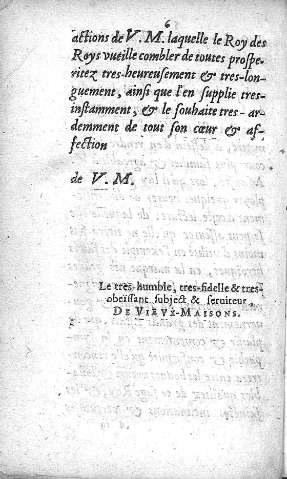 6
actions de V. M. laquelle le Roy des
Roys vueille combler de toutes prospe-
ritez tres-heureusement & tres-lon-
guement, ainsi que l'en supplie tres-
instamment, & le souhaite tres-ar-
demment de tout son cœur & af-
fection
de V. M.
Le tres-humble, tres-fidelle & tres-
obeissant subject & seruiteur,
DE VIEVX-MAISONS.